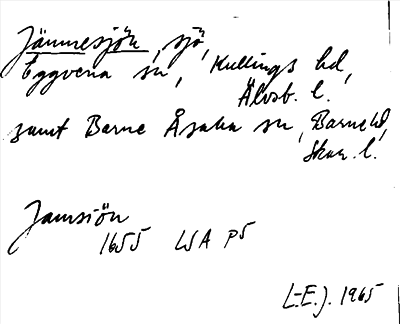 Jännesjön, sjö,
Eggvena sn, Kullings hd,
Älvsb. l.
samt Barne Åsaka sn, Barne hd,
Skar. l.
Jamsiön
1655 LSA P5
L-E.J. 1965